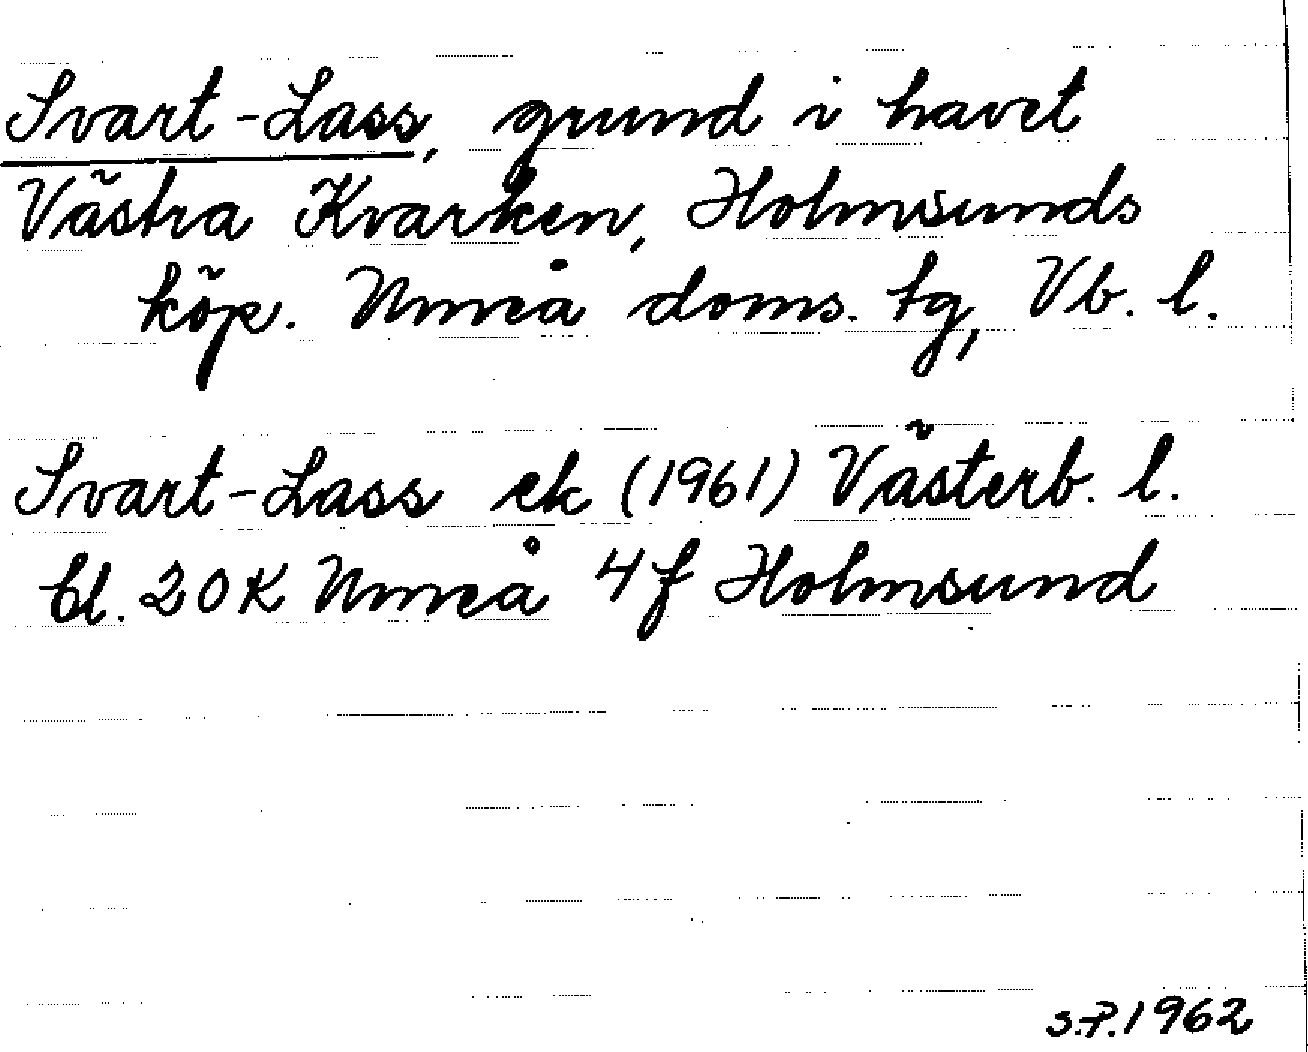 Svart-Lass, grund i havet
Västra Kvarken, Holmsunds
köp. Umeå doms. tg, Vb. l.
Svart-Lass ek (1961) Västerb. l.
bl. 20K Umeå 4f Holmsund
S.P. 1962